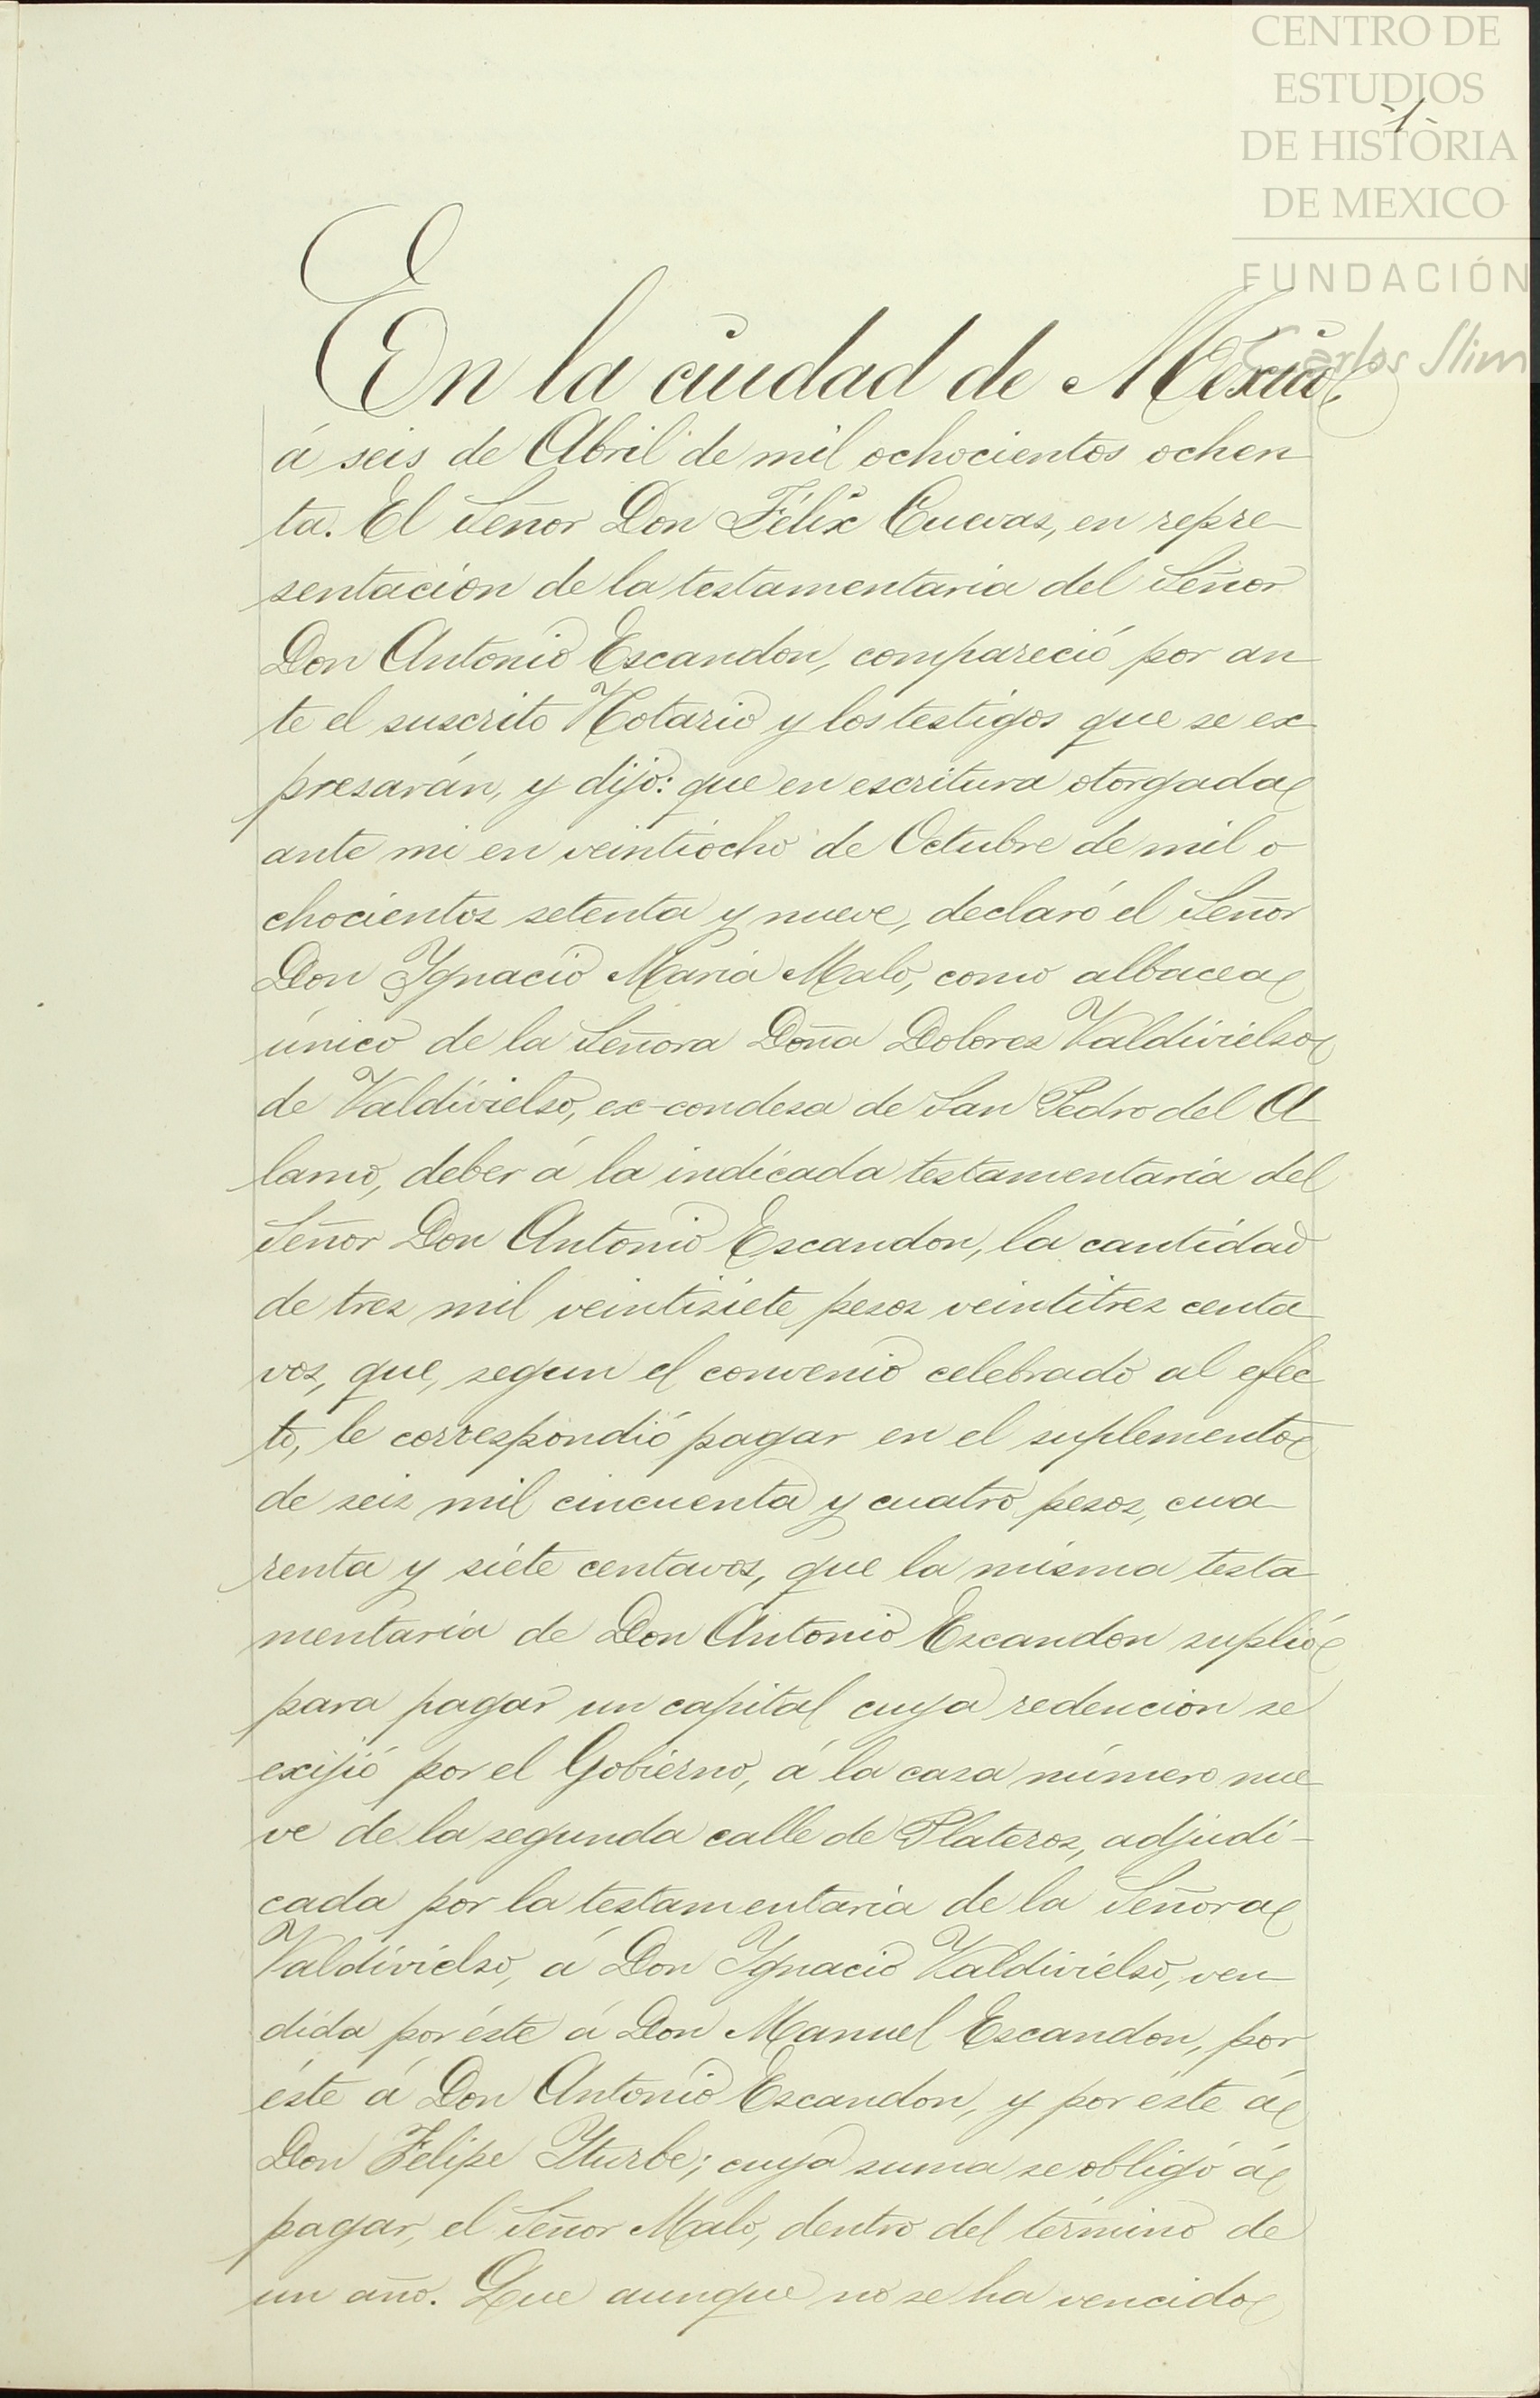 CENTRO DE
ESTUDIOS
DE HISTORIA
DE MEXICO
FUNDACIÓN
Carlos Slim
-1-
En la ciudad de Mexico
á seis de Abril de mil ochocientos ochen
ta. El Señor Don Félix Cuevas, en repre
sentacion de la testamentaria del Señor
Don Antonio Escandon, compareció por an
te el suscrito Notario y los testigos que se ex
presarán, y dijo: que en escritura otorgada
ante mi en veintiocho de Octubre de mil o
chocientos setenta y nueve, declaró el Señor
Don Ygnacio Maria Malo, como albacea
único de la Señora Doña Dolores Valdivielso
de Valdivielso, ex-condesa de San Pedro del A
lamo, deber á la indicada testamentaria del
Señor Don Antonio Escandon, la cantidad
de tres mil veintisiete pesos veintitres centa
vos, que, segun el convenio celebrado al efec
to, le correspondió pagar en el suplemento
de seis mil cincuenta y cuatro pesos, cua
renta y siete centavos, que la misma testa
mentaria de Don Antonio Escandon suplió
para pagar un capital cuya redencion se
exijió por el Gobierno, á la casa número nue
ve de la segunda calle de Plateros, adjudi-
cada por la testamentaria de la Señora
Valdivielso, á Don Ygnacio Valdivielso, ven
dida por éste á Don Manuel Escandon, por
éste á Don Antonio Escandon, y por éste á
Don Felipe Yturbe; cuya suma se obligó á
pagar, el Señor Malo, dentro del término de
un año. Que aunque no se ha vencido